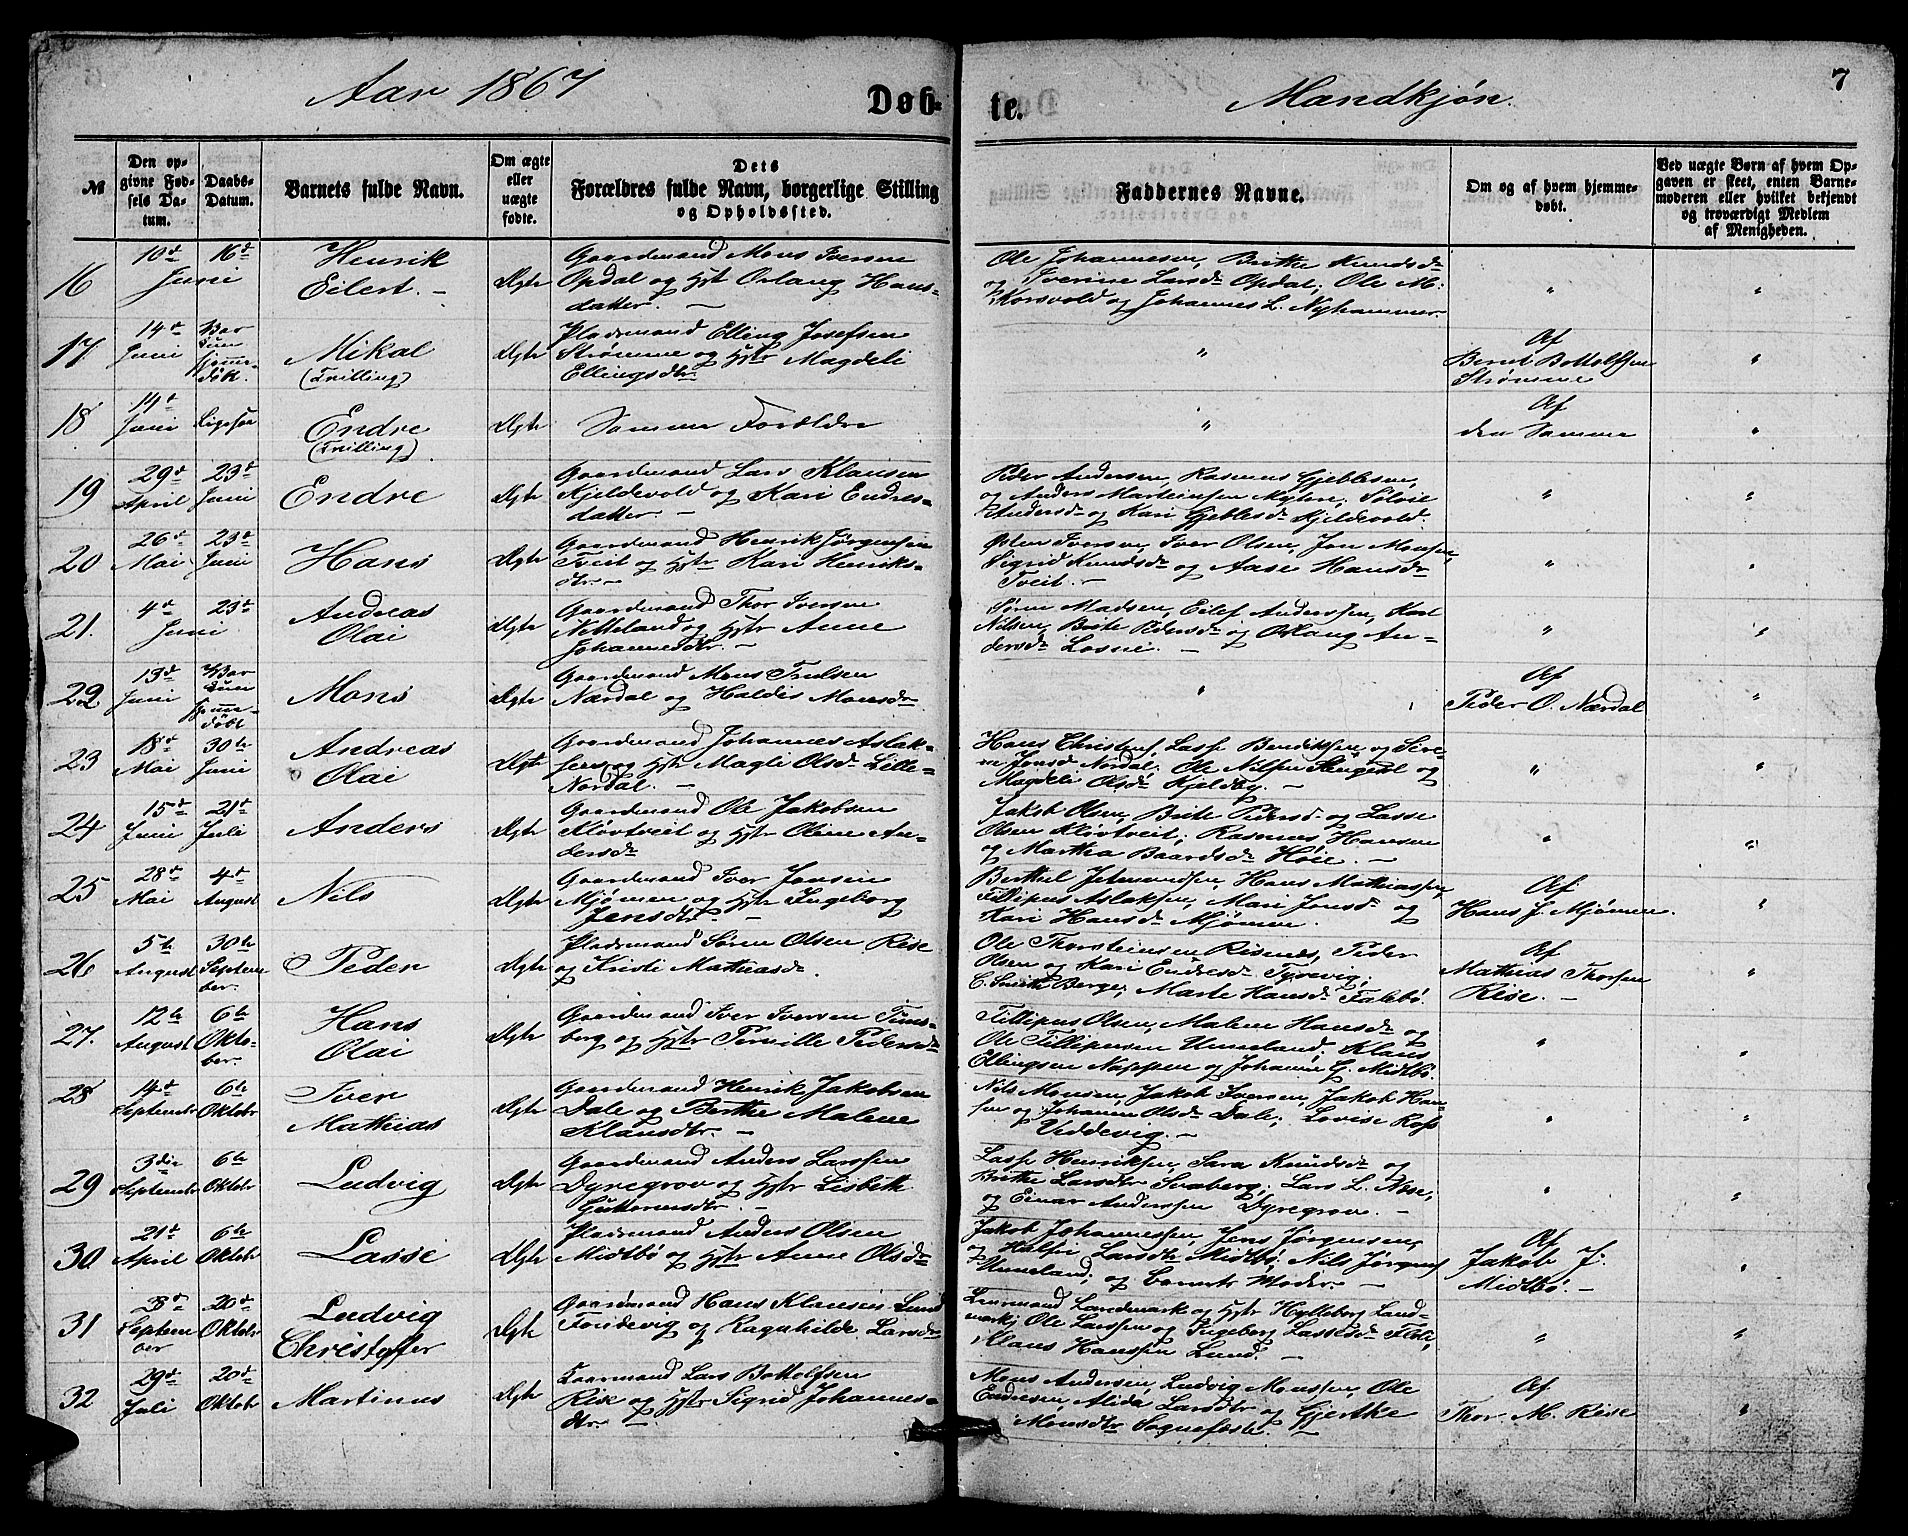 Aar 1867
Døb-
te.
Mandkjøn.
7
№
Den op-
givne Fød-
sels Da-
tum.
Daabs-
Datum.
Barnets fulde Navn.
Om ægte
eller
uægte
fødte.
Dets
Forældres fulde Navn, borgerlige Stilling
og Opholdssted.
Faddernes Navne.
Om og af hvem hjemme-
døbt.
Ved uægte Børn af hvem Op-
gaven er skeet, enten Barne-
moderen eller hvilket bekjendt
og troværdigt Medlem
af Menigheden.
16
10d
Juni
16d
Henrik
Eilert. -
Ægte
Gaardmand Mons Iversen
Opdal og Hstr Orlaug Hans-
datter. -
Ole Johannesen, Brithe Knudsdr
og Iverine Larsdr Opdal; Ole M.
Korsvold og Johannes L. Nyhammer
"
"
17
14d
Juni
Mikal
(Tvilling)
Ægte
Pladsmand Elling Josefsen
Strømme og Hstr Magdeli
Ellingsdtr
"
Af
Bernt Bottolfsen
Strømme
"
18
14d
Juni
Ligesaa
Endre
(Tvilling)
Ægte
Samme Forældre
"
Af
den Samme
"
19
29d
April
23d
Juni
Endre
Ægte
Gaardmand Lars Klausen
Kjeldevold og Kari Endres-
datter. -
Peder Andersen, Rasmus Gjeblesen,
og Anders Marteinsen Myhre; Sølvie
Andersdr og Kari Gjeblesdr Kjeldevold.
"
"
20
26d
Mai
23d
Juni
Hans
Ægte
Gaardmand Henrik Jørgensen
Tveit og Hstr Kari Henriks-
dtr. -
Iversen, Iver Olsen, Jon Monsen,
Sigrid Knudsdr og Aase Hansdr
Tveit. -
"
"
21.
4d
Juni
23d
Andreas
Olai
Ægte
Gaardmand Thor Iversen
Netteland og Hstr Anne
Johannesdtr. -
Søren Madsen, Eilef Anderssen, Karl
Nilsen, Brite Pedersdr og Orlaug An-
dersdr Losne. -
"
"
22
13d
Juni
Mons
Ægte
Gaardmand Mons Trulsen
Nærdal og Haldis Monsdr
"
Af
Peder O. Nærdal
"
23
18d
Mai
30te
Juni
Andreas
Olai
Ægte
Gaardmand Johannes Aslak-
sen og Hstr Magli Olsdr Lille-
Nordal. -
Hans Christens, Lasse Bendiksen og Sire-
ne Jensdr Nordal; Ole Nilsen Stengesol og
Magdeli Olsdr Kjeldby. -
"
"
24
15d
Juni
21d
Juli
Anders
Ægte
Gaardmand Ole Jakobsen
Kløvtveit og Hstr Oline An-
dersdr
Jakob Olsen, Brite Pedersdr og Lasse
Olsen Kløvtveit; Rasmus Hansen
og Martha Baardsdr Høie. -
"
"
25
28d
Mai
4d
August
Nils
Ægte
Gaardmand Iver Jensen
Mjømen og Hstr Ingeborg
Jensdtr. -
Berthel Hans Mathiassen,
Fillipus Aslaksen, Mari Jonsdr og
Kari Hansdr Mjømen.
Af
Hans J. Mjømen.
"
26
5te
August
30te
Septem
ber.
Peder
Ægte
Pladsmand Søren Olsen Rise
og Kristi Mathiasdr.
Ole Thorsteinsen Risenes, Peder
Olsen og Kari Endresdr Tyvevig;
C. Smith Berge; Marte Hansdr Falebø.
Af
Mathias Thorsen
Rise. -
"
27.
12te
August
6te
Okto-
ber.
Hans
Olai
Ægte
Gaardmand Iver Iversen Tuns-
berg og Hstr Pernille Pedersdr
Fillipus Olsen, Malene Hansdr og
Ole Fillipusen Unneland; Klaus
Ellingsen Nappen og Johanne G. Midtbø.
"
"
28
14d
Septembr
6te
Oktobr
Iver
Mathias
Ægte
Gaardmand Henrik Jakobsen
Dale og Berthe Malene
Klausdtr. -
Nils Monsen, Jakob Iversen, Jakob Han-
sen og Johanne Olsdr Dale; Lovise Ross
Veddevig. -
"
"
29
3die
Septembr
6te
Oktobr
Ludvig
Ægte
Gaardmand Anders Larssen
Dyregrov og Hstr Lisbeth
Guttormsdtr. -
Lasse Henriksen, Sara Knudsdr og
Brithe Larsdtr Svaberg; Lars L. Nese,
og Einar Anderssen Dyregrov. -
"
"
30
21d
April
6te
Oktobr
Lasse
Ægte
Pladsmand Anders Olsen
Midtbø og Hstr Anne Olsdr
Jakob Johannessen, Jens Jørgensen,
og Larsdtr Midtbø; Nils Jørgens
Unneland; og Barnets Moder. -
Af
Jakob J.
Midtbø. -
"
31
3d
Septem
ber
20d
Oktobr
Ludvig
Christoffer
Ægte
Gaardmand Hans Klausen Lund
Tondevig og Ragnhilde Larsdr
Lensmand Landmark og Hstr Hylleborg Land-
mark; Ole Larssen og Ingeborg Lassesdr Flole,
Klaus Hanssen Lund. -
"
"
32
29d
Juli
20d
Oktobr
Martinus
Ægte
Gaardmand Lars Bottolfsen
Rise og Hstr Sigrid Johannes-
dtr. -
Mons Andersen, Ludvig Monssen, Ole
Endresen, Alida Larsdtr og Gjertke
Monsdtr Sognefeste. -
Af
Thor M. Rise
"